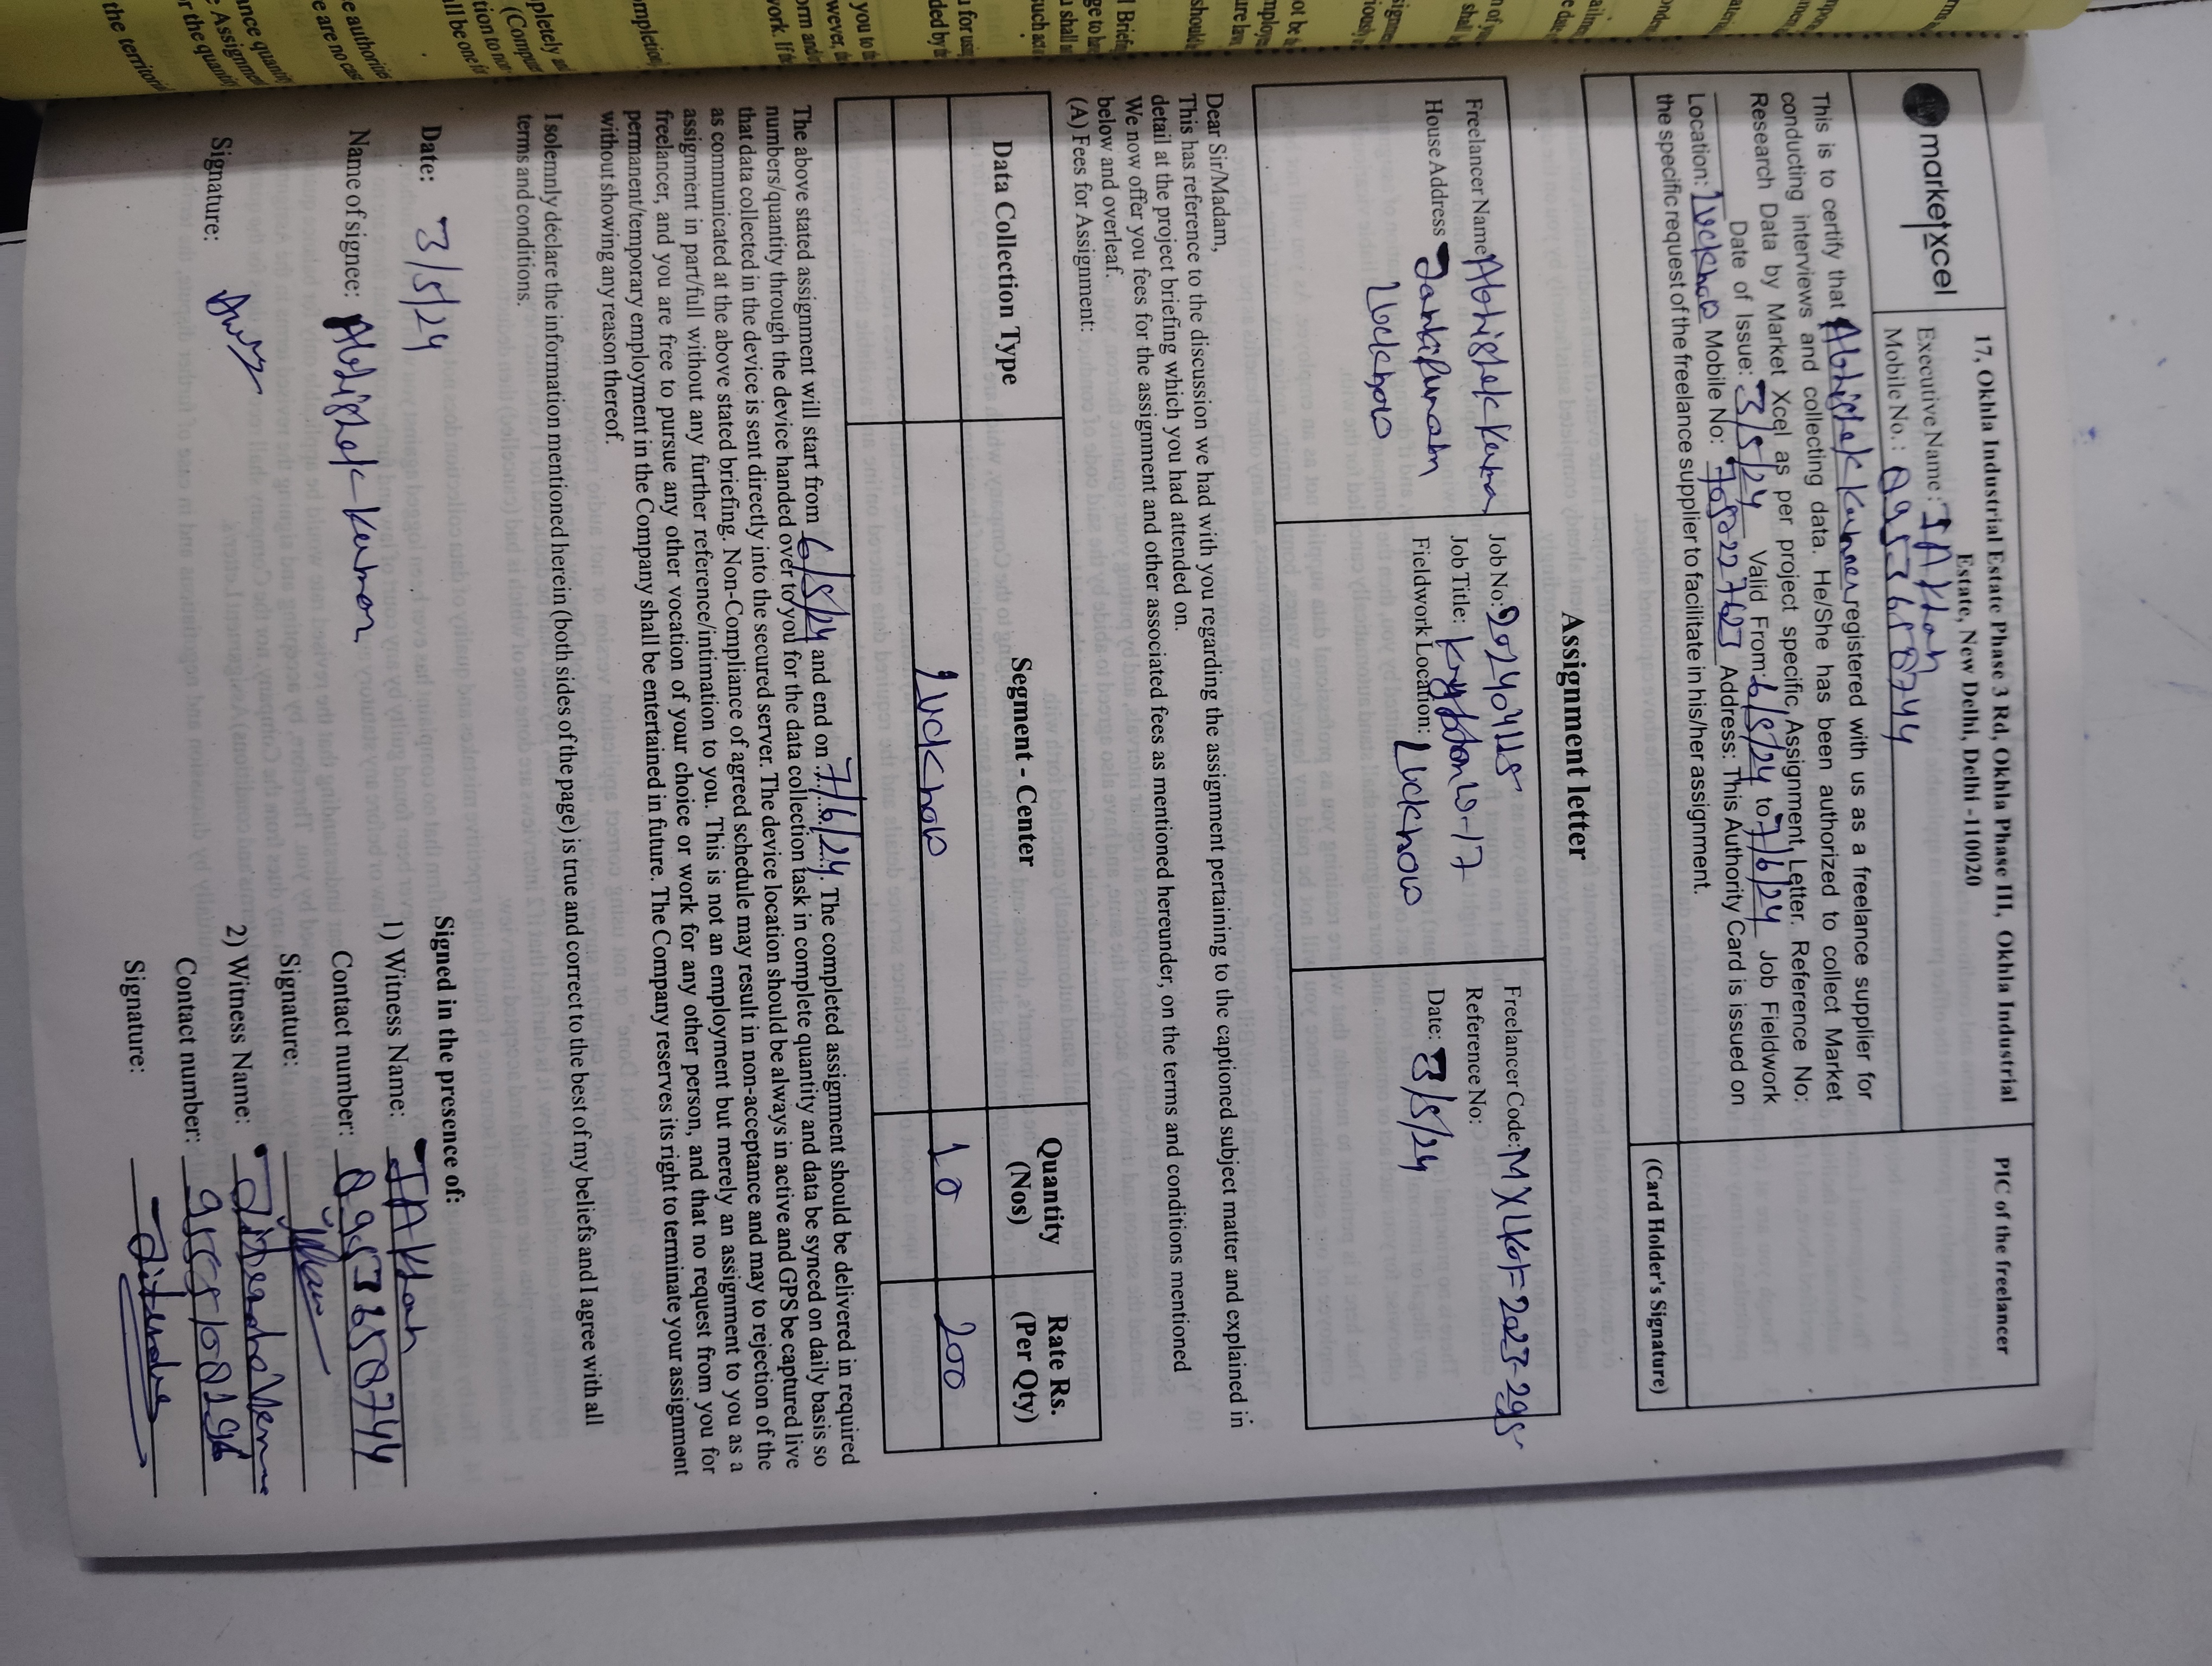 marketxcel
17, Okhla Industrial Estate Phase 3 Rd, Okhla Phase III, Okhla Industrial
Estate, New Delhi, Delhi -110020
PIC of the freelancer
Executive Name :
Mobile No. :
This is to certify that Abhishek Kumar registered with us as a freelance supplier for
conducting interviews and collecting data. He/She has been authorized to collect Market
Research Data by Market Xcel as per project specific, Assignment Letter. Reference No:
Date of Issue: 3/5/24 Valid From: 6/5/24 to 7/6/24 Job Fieldwork
Location: Lucknow Mobile No: Address: This Authority Card is issued on
the specific request of the freelance supplier to facilitate in his/her assignment.
(Card Holder's Signature)
Assignment letter
Freelancer Name Abhishek Kumar
House Address Jankipuram
Lucknow
Job No:
Job Title: Krypton W-17
Fieldwork Location: Lucknow
Freelancer Code:
Reference No:
Date: 3/5/24
Dear Sir/Madam,
This has reference to the discussion we had with you regarding the assignment pertaining to the captioned subject matter and explained in
detail at the project briefing which you had attended on.
We now offer you fees for the assignment and other associated fees as mentioned hereunder, on the terms and conditions mentioned
below and overleaf.
(A) Fees for Assignment:
Data Collection Type Segment - Center Quantity (Nos) Rate Rs. (Per Qty)
Lucknow 10 200
The above stated assignment will start from 6/5/24 and end on 7/6/24. The completed assignment should be delivered in required
numbers/quantity through the device handed over to you for the data collection task in complete quantity and data be synced on daily basis so
that data collected in the device is sent directly into the secured server. The device location should be always in active and GPS be captured live
as communicated at the above stated briefing. Non-Compliance of agreed schedule may result in non-acceptance and may to rejection of the
assignment in part/full without any further reference/intimation to you. This is not an employment but merely an assignment to you as a
freelancer, and you are free to pursue any other vocation of your choice or work for any other person, and that no request from you for
permanent/temporary employment in the Company shall be entertained in future. The Company reserves its right to terminate your assignment
without showing any reason thereof.
I solemnly declare the information mentioned herein (both sides of the page) is true and correct to the best of my beliefs and I agree with all
terms and conditions.
Date: 3/5/24
Name of signee: Abhishek Kumar
Signature:
Signed in the presence of:
1) Witness Name:
Contact number:
Signature:
2) Witness Name:
Contact number:
Signature: